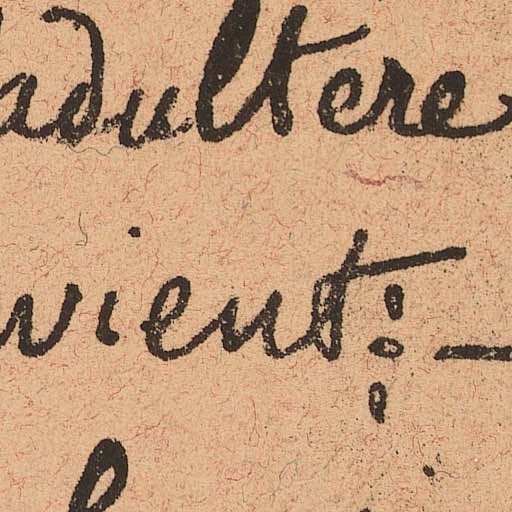 adultere
vient : —